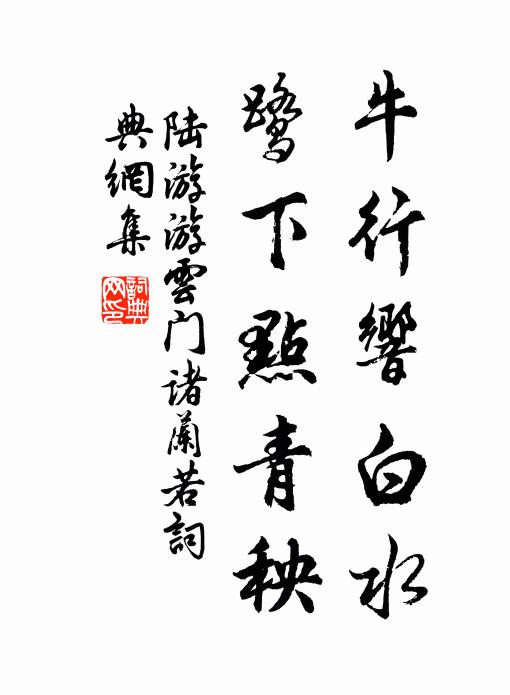 牛行響白水
鷺下點青秧
陸游游雲門諸蘭若詞
典網集
詞典
网印